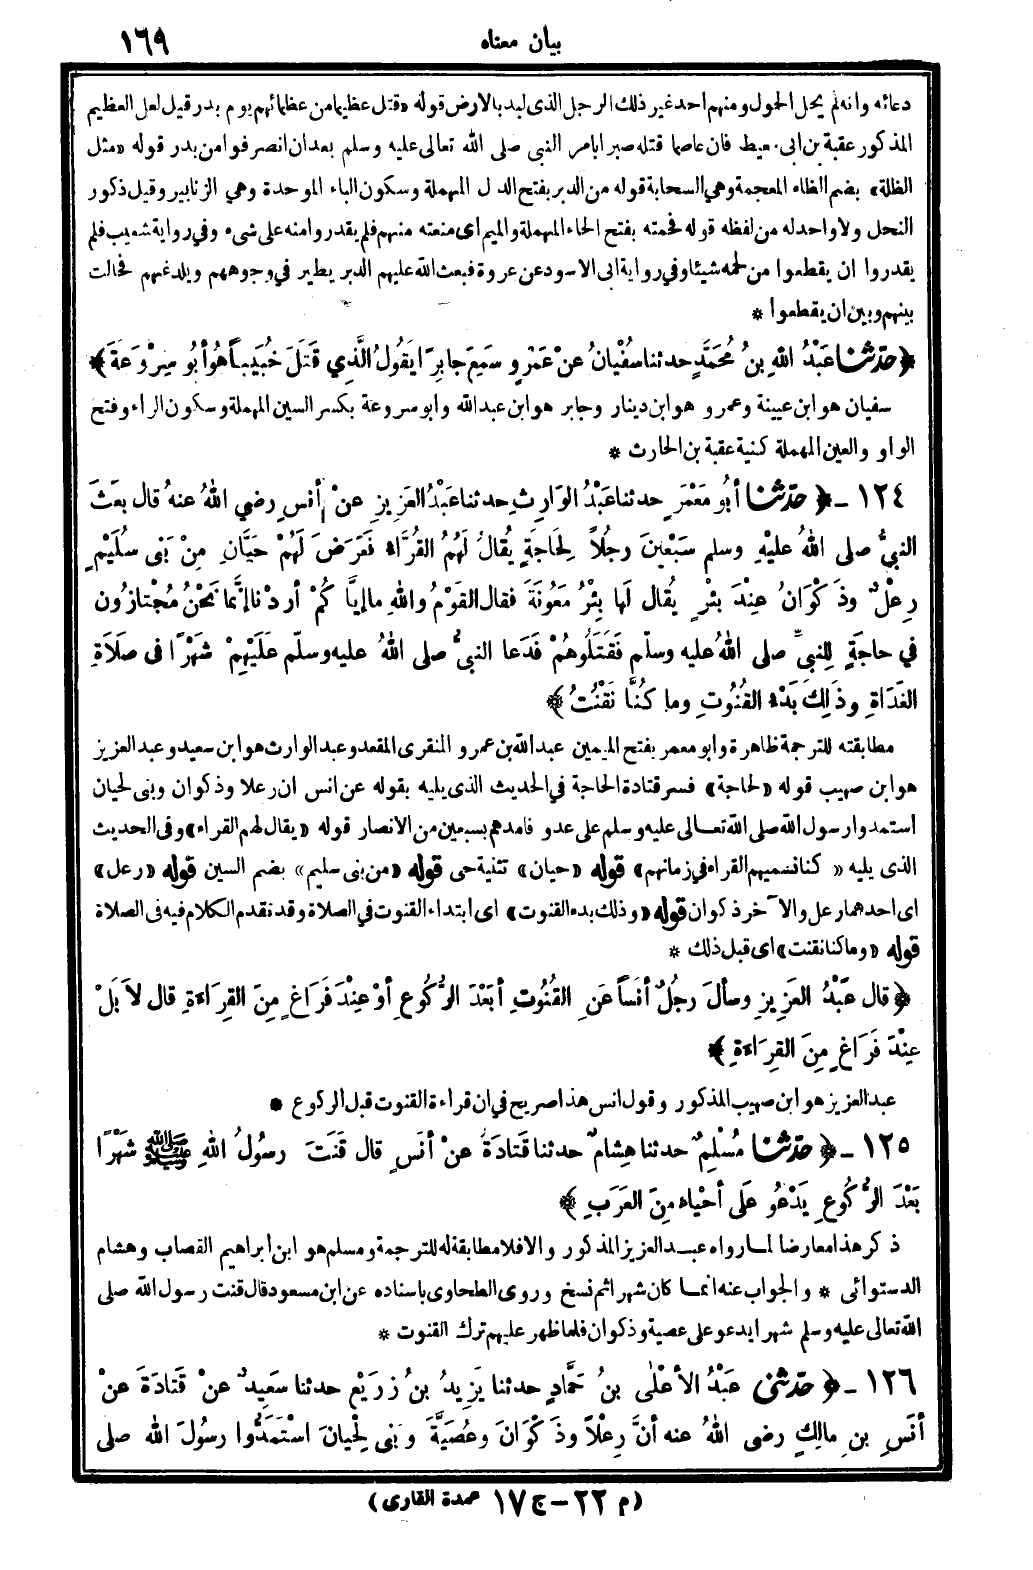 بيان معناه ١٦٩
دعائه وانه لم يحل الحول ومنهم احد غير ذلك الرجل الذى لبد بالارض قوله «قتل عظيما من عظمائهم يوم بدر قيل لعل العظيم
المذكور عقبة بن ابى معيط فان عاصما قتله صبرا بامر النبى صلى الله تعالى عليه وسلم بعد ان انصرفوا من بدر قوله «مثل
الظلة» بضم الظاء المعجمة وهي السحابة قوله من الدبر بفتح الدال المهملة وسكون الباء الموحدة وهي الزنابير وقيل ذكور
النحل ولا واحد له من لفظه قوله فحمته بفتح الحاء المهملة والميم اى منعته منهم فلم يقدروا منه على شىء وفي رواية شعيب فلم
يقدروا ان يقطعوا من لحمه شيئا وفي رواية ابى الاسود عن عروة فبعث الله عليهم الدبر يطير في وجوههم ويلدغهم فحالت
بينهم وبين ان يقطعوا *
﴿حَدَّثَنَا عَبْدُ اللهِ بنُ مُحَمَّدٍ حدثنا سُفْيانُ عنْ عَمْرٍو سَمِعَ جابِرًا يَقُولُ الَّذِي قَتَلَ خُبَيباً هُوَ أبُو سِرْوَعَةَ﴾
سفيان هو ابن عيينة وعمرو هو ابن دينار وجابر هو ابن عبدالله وابو سروعة بكسر السين المهملة وسكون الراء وفتح
الواو والعين المهملة كنية عقبة بن الحارث *
١٢٤ - ﴿حَدَّثَنَا أبُو مَعْمَرٍ حدثنا عَبْدُ الوَارِثِ حدثنا عَبْدُ العَزِيزِ عنْ أنَسٍ رضي اللهُ عنهُ قال بعَثَ
النبيُّ صلى اللهُ عليْهِ وسلم سَبْعِينَ رجُلاً لِحاجَةٍ يُقالُ لَهُمُ القُرَّاءُ فَعَرَضَ لَهُمْ حَيَّانِ مِنْ بَنِى سُلَيْمٍ
رِعْلٌ وذَكْوَانُ عِنْدَ بئْرٍ يُقال لَها بِئْرُ مَعُونَةَ فقال القَوْمُ واللهِ ما إيَّاكُمْ أردْنا إنَّما نَحْنُ مُجْتازُونَ
في حاجَةٍ لِلنبيِّ صلى اللهُ عليه وسلّم فَقَتَلُوهُمْ فَدَعا النبيُّ صلى اللهُ عليه وسلّم عَلَيْهِمْ شَهْرًا فى صلاَةِ
الغَدَاةِ وذَلِكَ بَدْءُ القُنُوتِ وما كُنَّا نَقْنُتُ﴾
مطابقته للترجمة ظاهرة وابو معمر بفتح الميمين عبدالله بن عمرو المنقرى المقعد وعبد الوارث هو ابن سعيد وعبد العزيز
هو ابن صهيب قوله «لحاجة» فسر قتادة الحاجة في الحديث الذى يليه بقوله عن انس ان رعلا وذكوان وبنى لحيان
استمدوا رسول الله صلى الله تعالى عليه وسلم على عدو فامدهم بسبعين من الانصار قوله «يقال لهم القراء» وفى الحديث
الذى يليه «كنا نسميهم القراء في زمانهم» قوله «حيان» تثنية حى قوله «من بنى سليم» بضم السين قوله «رعل»
اى احدهما رعل والآخر ذكوان قوله «وذلك بدء القنوت» اى ابتداء القنوت في الصلاة وقد تقدم الكلام فيه فى الصلاة
قوله «وما كنا نقنت» اى قبل ذلك *
﴿قال عَبْدُ العَزِيزِ وسألَ رجُلٌ أنَساً عَنِ القُنُوتِ أبَعْدَ الرُّكُوعِ أوْ عِنْدَ فَرَاغٍ مِنَ القِرَاءَةِ قال لاَ بَلْ
عِنْدَ فَرَاغٍ مِنَ القِرَاءَةِ﴾
عبد العزيز هو ابن صهيب المذكور وقول انس هذا صريح في ان قراءة القنوت قبل الركوع *
١٢٥ - ﴿حَدَّثَنَا مُسْلِمٌ حدثنا هِشامٌ حدثنا قَتادَةُ عنْ أنَسٍ قال قَنَتَ رسُولُ اللهِ ﷺ شَهْرًا
بَعْدَ الرُّكُوعِ يَدْعُو عَلَى أحْياءٍ مِنَ العَرَبِ﴾
ذكر هذا معارضا لما رواه عبد العزيز المذكور والا فلا مطابقة له للترجمة ومسلم هو ابن ابراهيم القصاب وهشام
الدستوائى * والجواب عنه انما كان شهرا ثم نسخ وروى الطحاوى باسناده عن ابن مسعود قال قنت رسول الله صلى
الله تعالى عليه وسلم شهرا يدعو على عصية وذكوان فلما ظهر عليهم ترك القنوت *
١٢٦ - ﴿حَدَّثَنِى عَبْدُ الأعْلَى بنُ حَمَّادٍ حدثنا يَزِيدُ بنُ زُرَيْعٍ حدثنا سَعِيدٌ عنْ قَتادَةَ عنْ
أنَسِ بنِ مالِكٍ رضى اللهُ عنه أنَّ رِعْلاً وذَكْوَانَ وعُصَيَّةَ وبَنِى لِحْيانَ اسْتَمَدُّوا رسُولَ الله صلى
(م ٢٢ - ج ١٧ عمدة القارى)